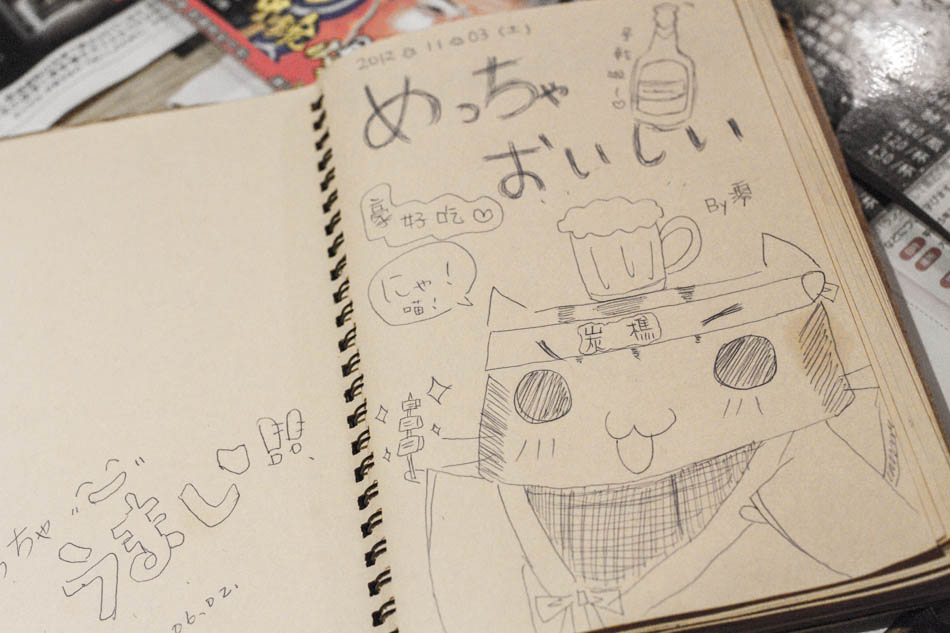 2012.11.03(土)
めっちゃ
おいしい
By 零
豪好吃♡
にゃ!
喵!
炭樵
ちゃ
うまし♡!!
06.02.